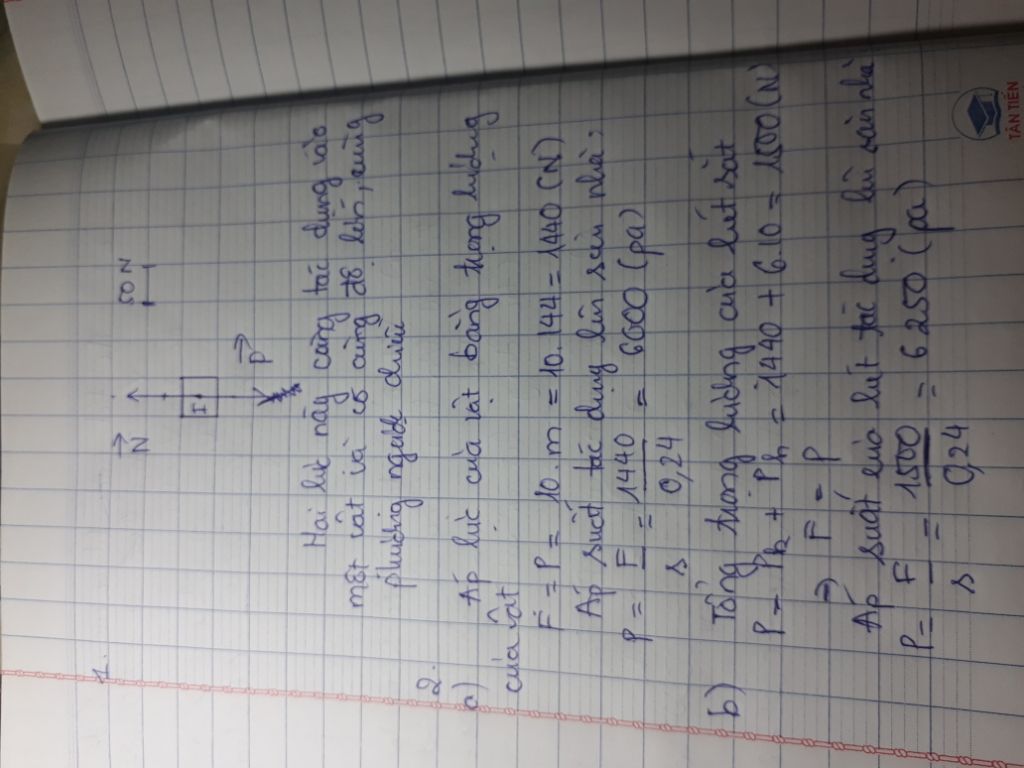 1.
50 N
N
I
P
Hai lực này cùng tác dụng vào
một vật và có cùng độ lớn, cùng
phương ngược chiều
2.
a) Áp lực của vật bằng trọng lượng
của vật
F = P = 10.m = 10.144 = 1440 (N)
Áp suất tác dụng lên sàn nhà,
P = F/s = 1440/0,24 = 6000 (pa)
b) Tổng trọng lượng của két sắt
P = P + Ph = 1440 + 6.10 = 1500 (N)
=> F = P
Áp suất của két tác dụng lên sàn nhà
P = F/s = 1500/0,24 = 6250 (pa)
TÂN TIẾN